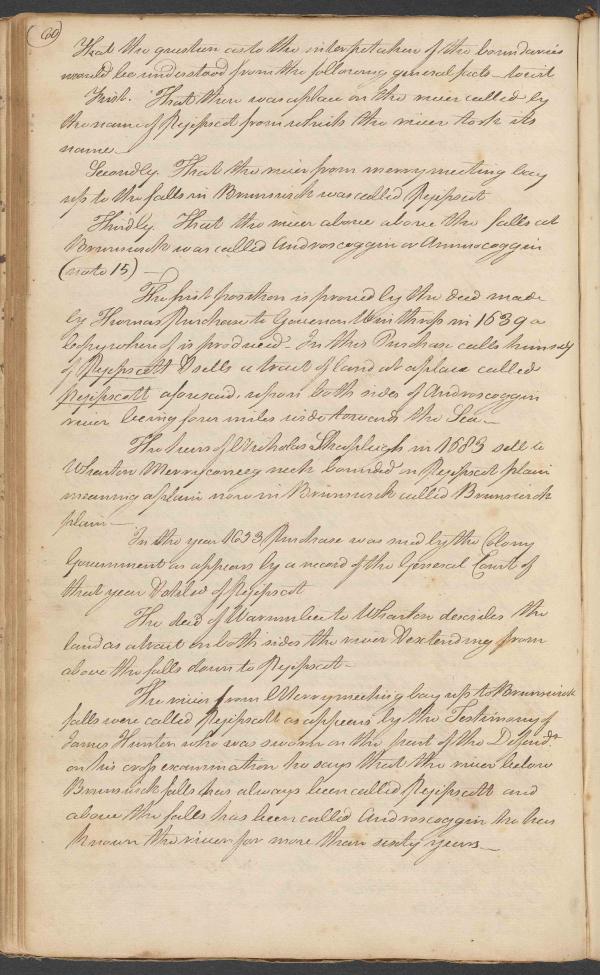 60
That the question as to the interpretation of the boundaries
would be understood from the following general facts to wit
First. That there was a place on the river called by
the name of Pejipscot from which the river took its
name
Secondly. That the river from merrymeeting bay
up to the falls in Brunswick was called Pejipscot
Thirdly. That the river above above the falls at
Brunswick was called Androscoggin or Ammoscoggin
(note 15) —
The first position is proved by the deed made
by Thomas Purchase to Governor Winthrop in 1639 a
Copy whereof is produced - In this Purchase calls himself
of Pejepscott & sells a tract of land at a place called
Pejipscott aforesaid, upon both sides of Androscoggin
river being four miles wide towards the Sea —
The heirs of Nicholas Shapleigh in 1683 sell to
Wharton Merryconeeg neck bounded on Pejipscot plain
meaning a plain now in Brunswick called Brunswick
plain —
In the year 1653 Purchase was sued by the Colony
Government as appears by a record of the General Court of
that year & styled of Pejipscot
The deed of Warumbee to Wharton descibes the
land as a tract on both sides the river & extending from
above the falls down to Pejipscot -
The river from Merrymeeting bay up to Brunswick
falls were called Pejipscott as appears by the Testimony of
James Hunter who was sworn on the part of the Defendt
on his cross examination he says that the river below
Brunswick falls has always been called Pejipscott and
above the falls has been called Androscoggin he has
known the river for more than sixty years —